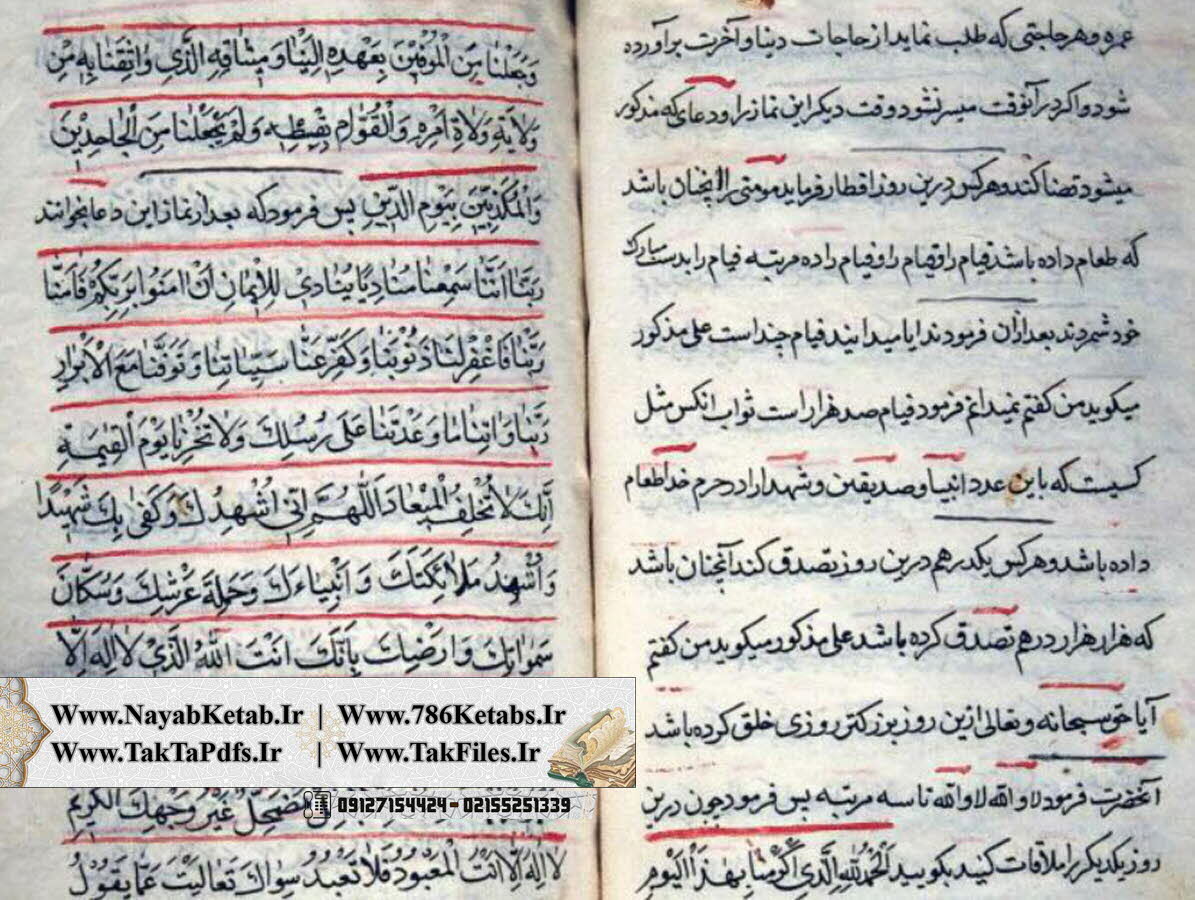 عمره و هر حاجتی که طلب نماید از حاجات دینا و آخرت برآورده
شود و اکر در آنوقت میسر نشود وقت دیکر این نماز را و دعای که مذکور
میشود قضا کند و هر کس درین روز افطار فرماید مومنی را آنچنان باشد
که طعام داده باشد فیام را و فیام را و فیام را ده مرتبه فیام را بدست مبارک
خود شمردند بعد ازان فرمودند ایا میدانید فیام چند است علی مذکور
میکوید من کفتم نمیدانم فرمود فیام صد هزار است ثواب انکس مثل
کسیت که باین عدد انبیا و صدیقین و شهدا را در حرم خدا طعام
داده باشد و هر کس یکدرهم درین روز تصدق کند آنچنان باشد
که هزار هزار درهم تصدق کرده باشد علی مذکور میکوید من کفتم
آیا حق سبحانه و تعالی ازین روز بزرکتر روزی خلق کرده باشد
آنحضرت فرمود لا و الله لا و الله تا سه مرتبه پس فرمود چون درین
روز یکدیکر را ملاقات کنید بکویید اَلْحَمْدُ لِلّٰهِ الَّذی اَکْرَمَنا بِهٰذَا الْیَوْمِ
وَجَعَلَنٰا مِنَ الْمُوفینَ بِعَهْدِهِ اِلَیْنٰا وَمیثٰاقِهِ الَّذی وٰاثَقَنٰا بِهِ مِنْ
وِلاٰیَةِ وُلاٰةِ اَمْرِهِ وَالْقُوّٰامِ بِقِسْطِهِ وَلَمْ یَجْعَلْنٰا مِنَ الْجٰاحِدینَ
وَالْمُکَذِّبینَ بِیَوْمِ الدّینِ پس فرمود که بعد از نماز این دعا بخوانند
رَبَّنٰا اِنَّنٰا سَمِعْنٰا مُنٰادِیًا یُنٰادی لِلْاِیمٰانِ اَنْ اٰمِنُوا بِرَبِّکُمْ فَاٰمَنّٰا
رَبَّنٰا فَاغْفِرْ لَنٰا ذُنُوبَنٰا وَکَفِّرْ عَنّٰا سَیِّئٰاتِنٰا وَتَوَفَّنٰا مَعَ الْاَبْرٰارِ
رَبَّنٰا وَاٰتِنٰا مٰا وَعَدْتَنٰا عَلیٰ رُسُلِکَ وَلاٰ تُخْزِنٰا یَوْمَ الْقِیٰمَةِ
اِنَّکَ لاٰ تُخْلِفُ الْمیعٰادَ اَللّٰهُمَّ اِنّی اُشْهِدُکَ وَکَفیٰ بِکَ شَهیدًا
وَاُشْهِدُ مَلاٰئِکَتَکَ وَاَنْبِیٰاءَکَ وَحَمَلَةَ عَرْشِکَ وَسُکّٰانَ
سَمٰوٰاتِکَ وَاَرْضِکَ بِاَنَّکَ اَنْتَ اللّٰهُ الَّذی لاٰ اِلٰهَ اِلّٰا
Www.NayabKetab.Ir | Www.786Ketabs.Ir
Www.TakTaPdfs.Ir | Www.TakFiles.Ir
09127154424 - 02155251339
غَیْرَ وَجْهِکَ الْکَریمِ
لاٰ اِلٰهَ اِلّٰا اَنْتَ الْمَعْبُودُ فَلاٰ نَعْبُدُ سِوٰاکَ تَعٰالَیْتَ عَمّٰا یَقُولُ